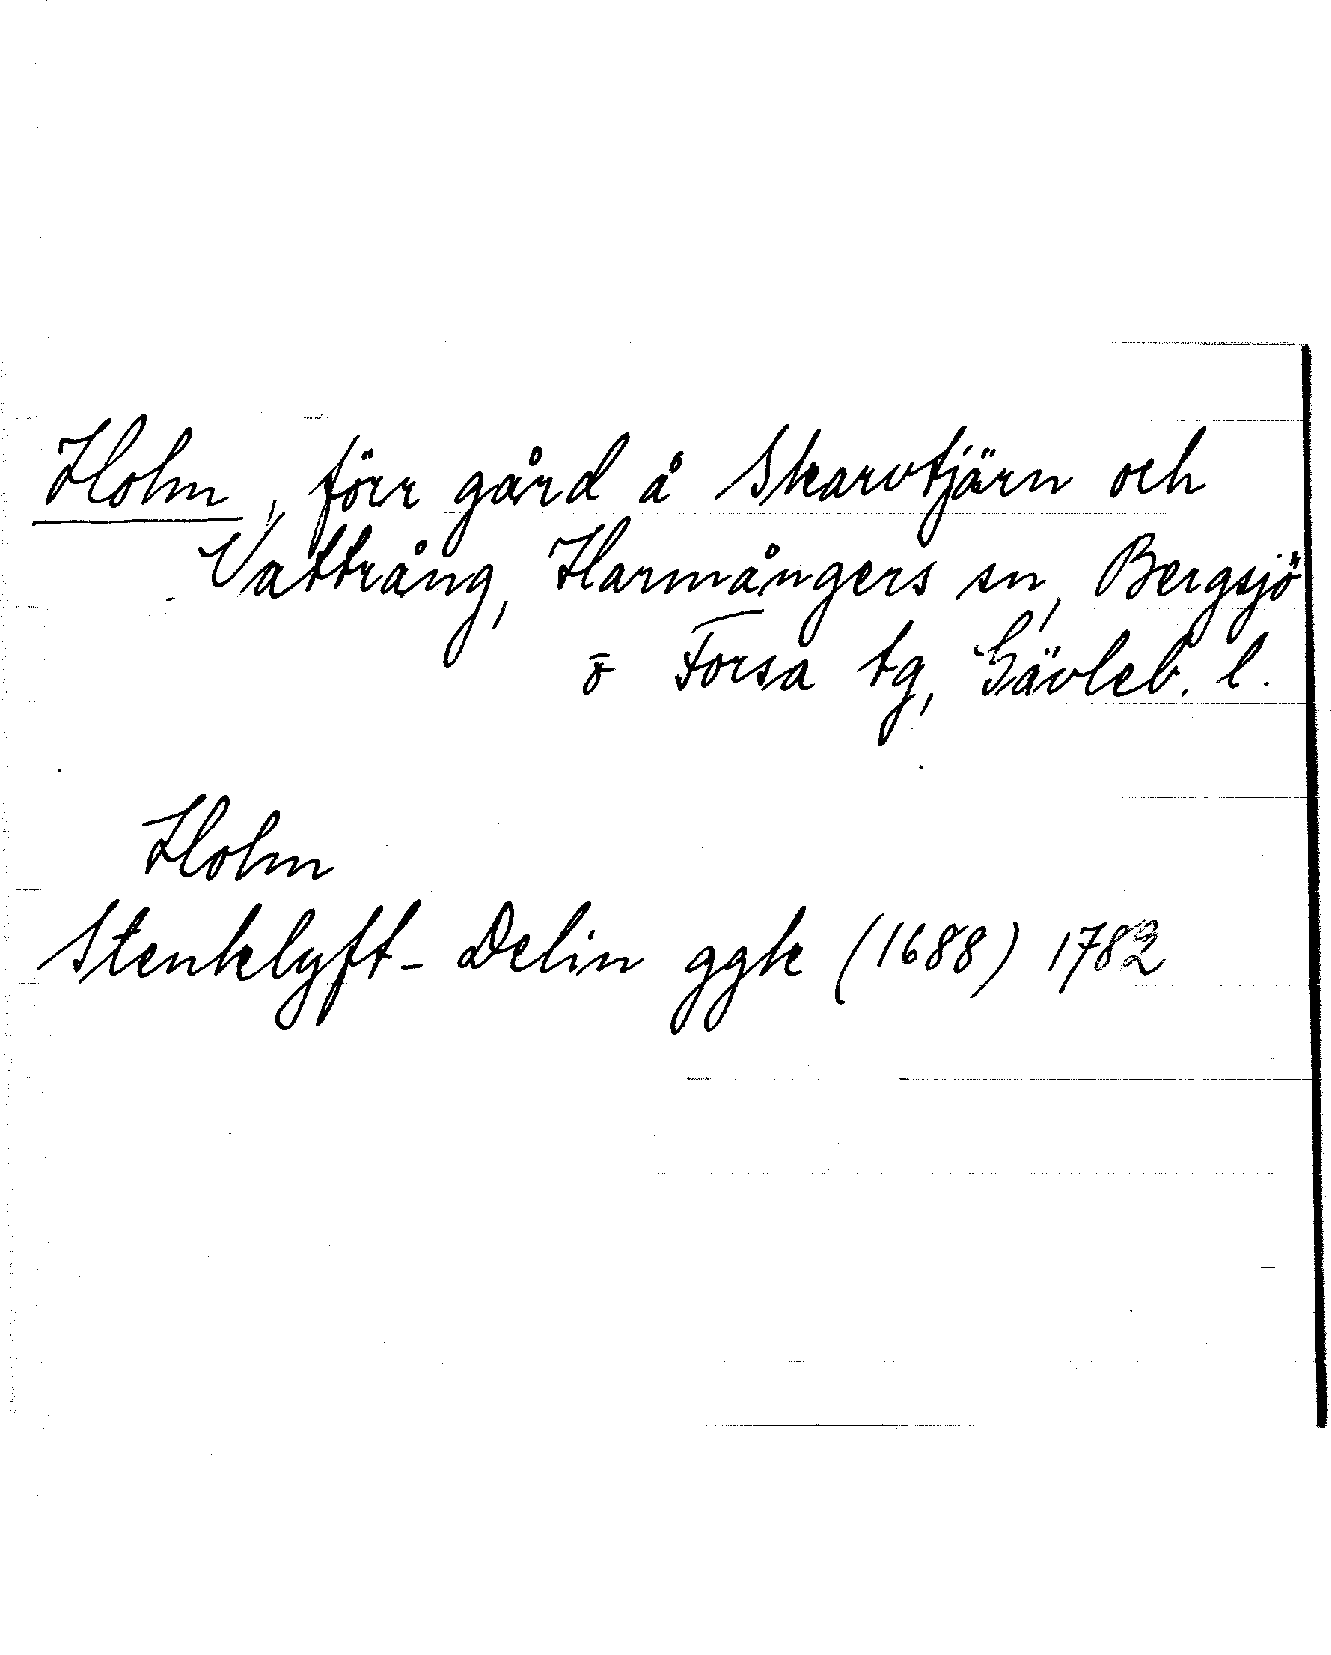 Holm, förr gård å Skarvtjärn och
Vattrång, Harmångers sn, Bergsjö
o Forsa tg, Gävleb. l.
Holm
Stenklyft - Delin ggk (1688) 1782